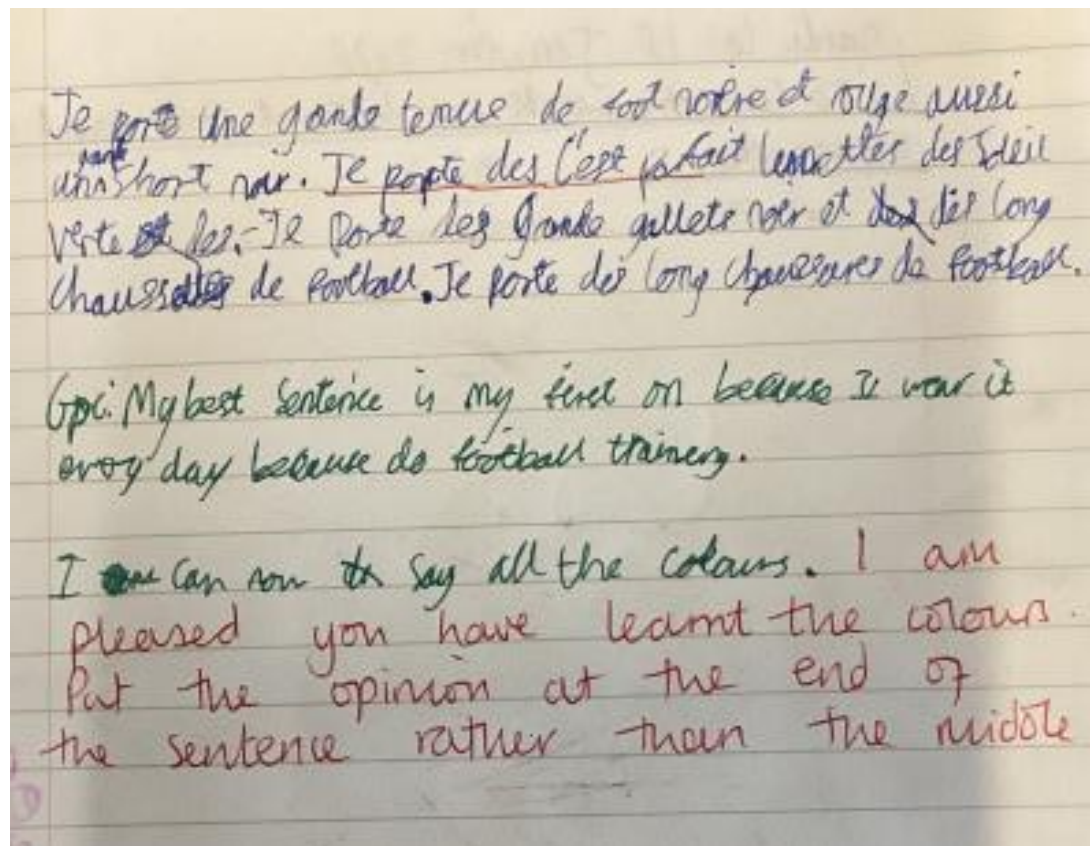 Je porte une grande tenue de foot noire et rouge aussi
grand
un short noir. Je porte des c'est parfait lunettes des Soleil
verte les. Je Porte des Grande gillets noir et des long
chauss de football. Je porte des long chaussures de football.
Gpc: My best Sentence is my first on because I wear it
every day because do football training.
I can now say all the colours. I am
pleased you have learnt the colours.
Put the opinion at the end of
the sentence rather than the middle